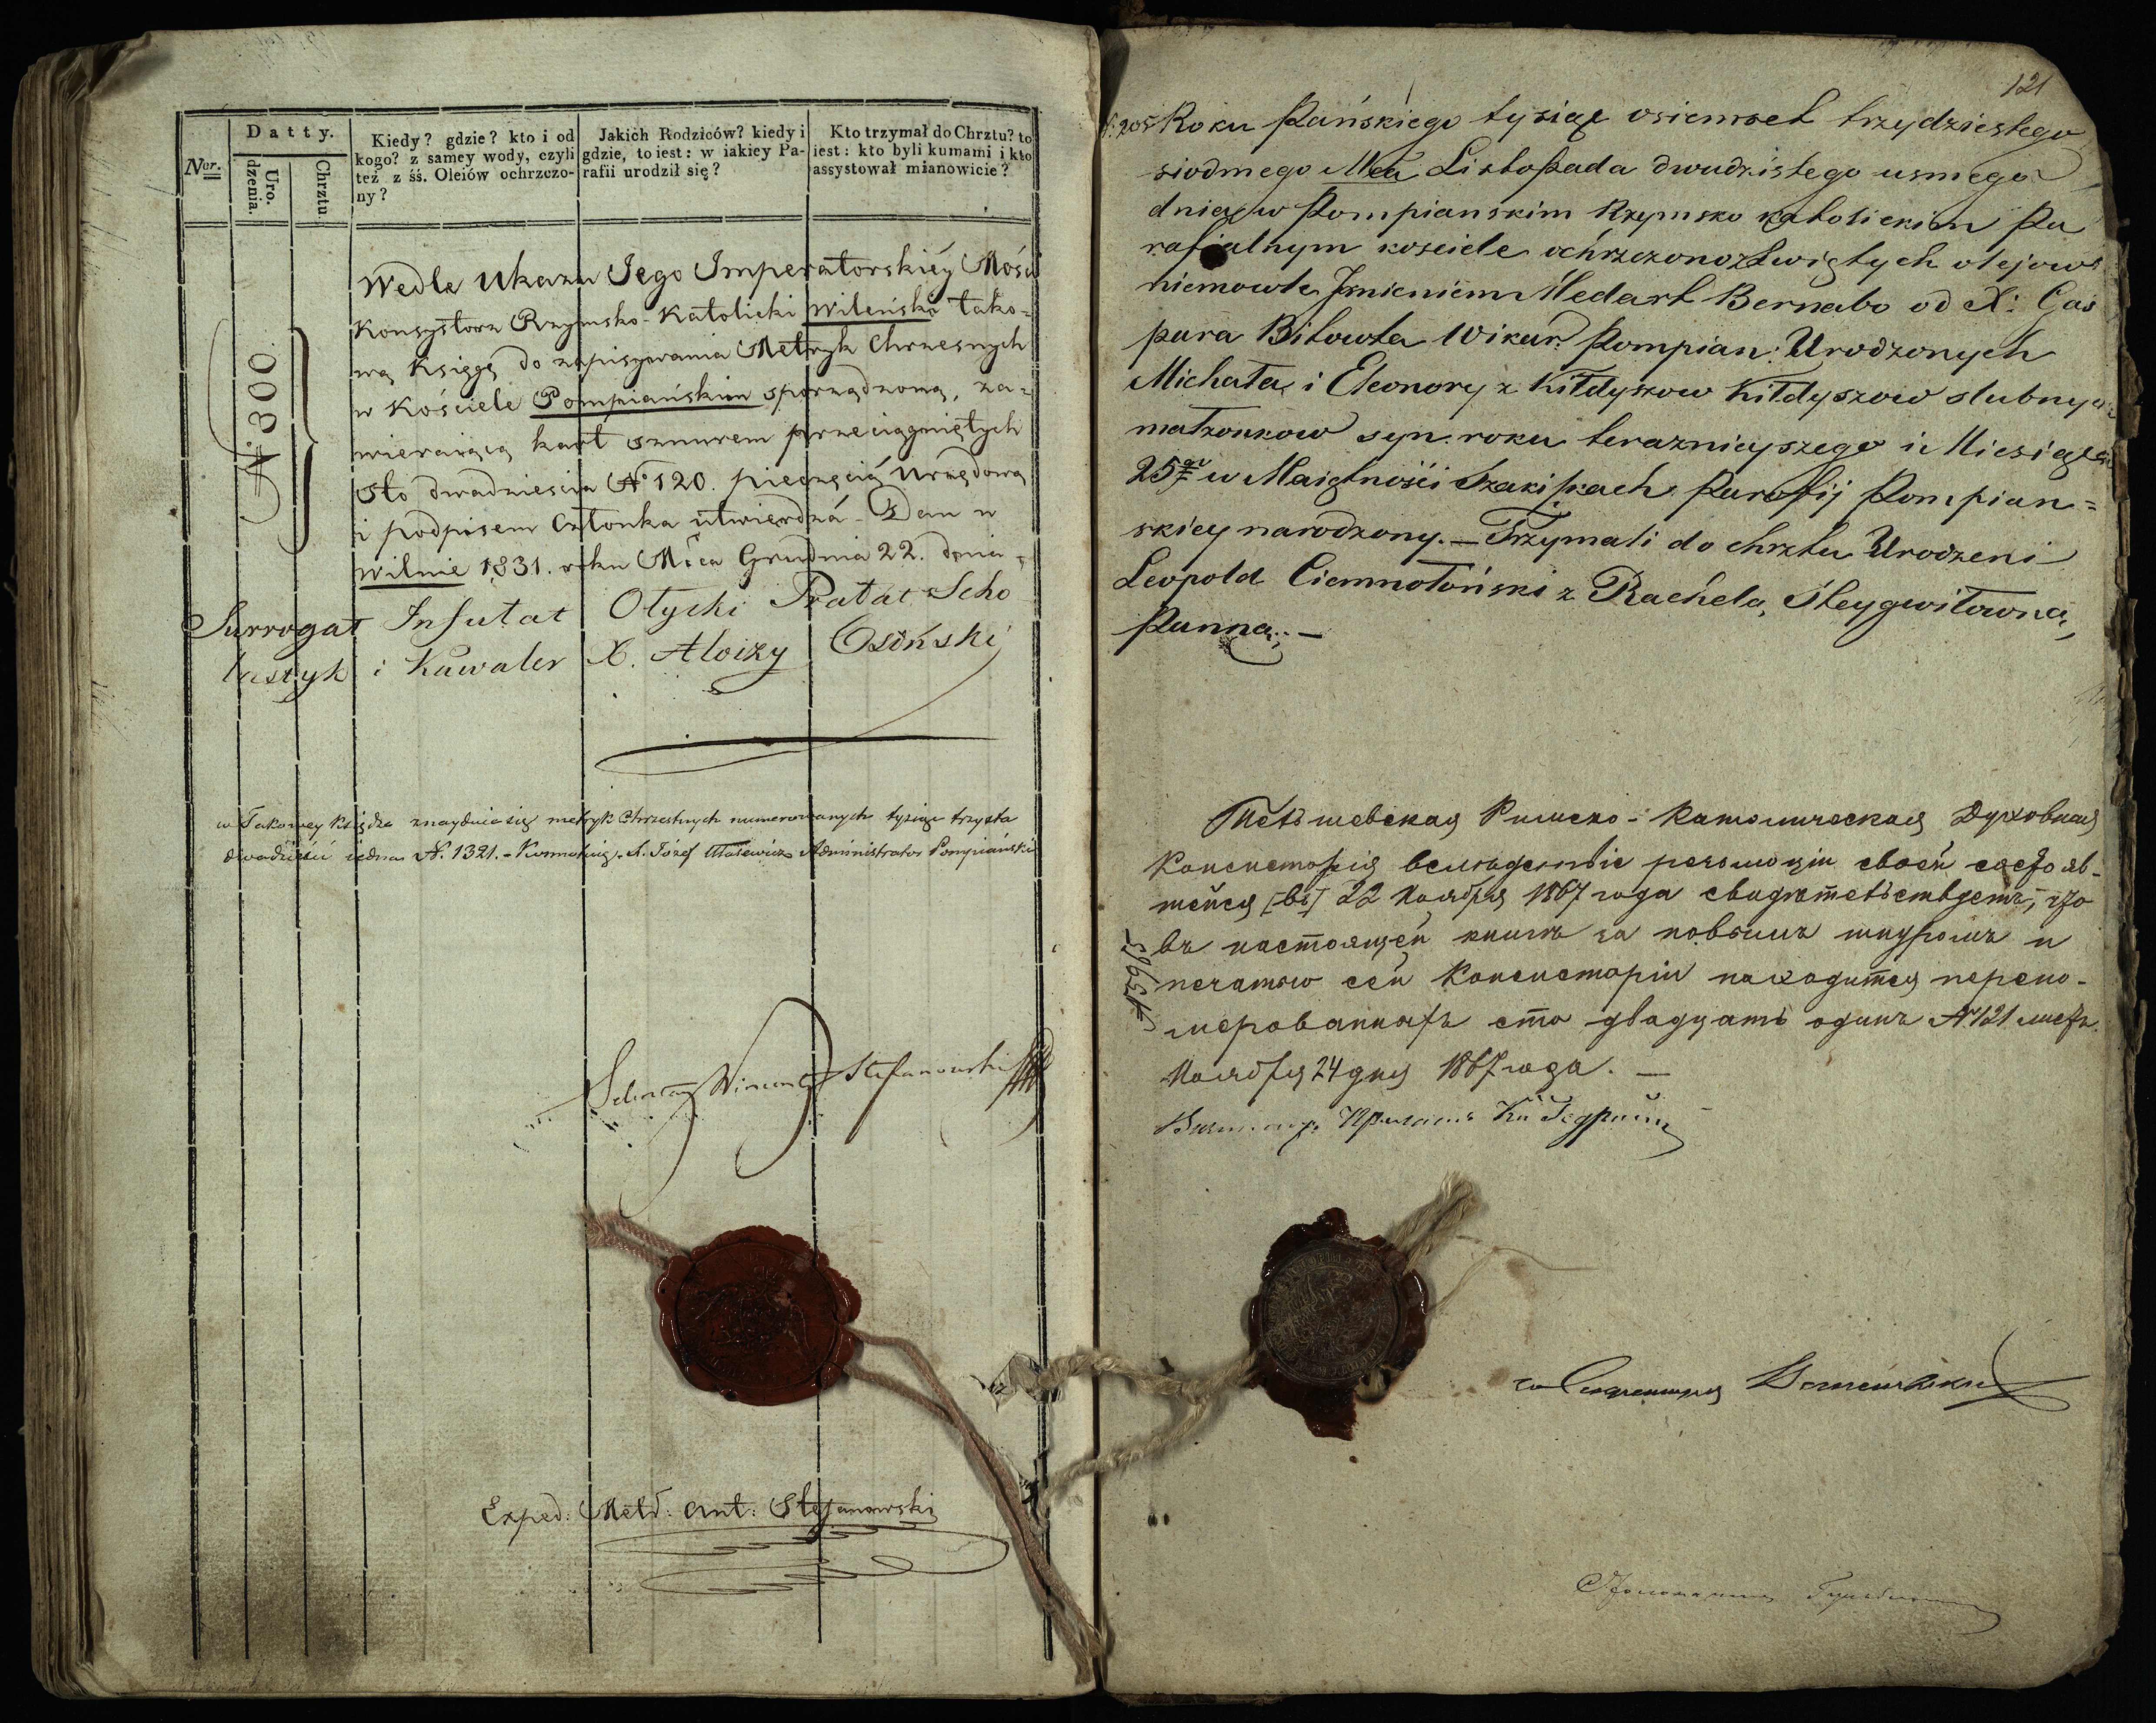 Datty.
Nor.
Uro.
dzenia.
Chrztu
Kiedy? gdzie? kto i od
kogo? z samey wody, czyli
też z śś. Oleiów ochrzczo-
ny?
Jakich Rodziców? kiedy i
gdzie, to iest: w iakiey Pa-
rafii urodził się?
Kto trzymał do Chrztu? to
iest: kto byli kumami i kto
assystował mianowicie?
N° 300.
Wedle Ukazu Jego Imperatorskiéy Mości
Konsystorz Rzymsko-Katolicki Wileńska tako=
wą Księgę do zapisywania Metryk Chrzesnych
w Kościele Pompiańskim sporządzoną, za=
wieraiącą kart sznurem przeciągniętych
Sto dwadzieścia N° 120. pieczęcią Urzędową
i podpisem Członka utwierdzá - Dan w
Wilnie 1831. roku Mca Grudnia 22. dnia
Surrogat Infułat Ołycki Prałat Scho
lastyk i Kawaler X. Aloizy Osiński
w Takowey Księdze znayduie się metryk Chrzestnych numerowanych tysiąc trzysta
dwadzieści iedna N. 1321. - X. Józef Administrator Pompiański
Sekretarz Wincenty Stefanowski
Exped: Metr: Ant: Stefanowski
121
N: 205 Roku Pańskiego tysiąc osiemset trzydziestego
siodmego Mca Listopada dwudzistego usmego
dnia w Pompianskim Rzymsko katolickim Pa
rafialnym kosciele ochrzczono z Swiętych olejow
niemowle Imieniem Medart Bernabo od X: Gas
para Bitowta Wikar: Pompian: Urodzonych
Michała i Eleonory z Kiłdyszow Kiłdyszow slubnych
małzonkow syn roku teraznieyszego i Miesiąca
25go w Maiętności Szakiszkach Parafij Pompian=
skiey narodzony. — Trzymali do chrztu Urodzeni
Leopold Ciemnołoński z Rachelą Steygwiłowną
Panną. —
Тельшевская Римско-Католическая Духовная
Консисторія вслѣдствіе резолюціи своей состояв-
шейся [въ] 22 Ноября 1867 года свидѣтельствуетъ, что
въ настоящей книгѣ за новымъ шнуромъ и
печатью сей Консисторіи находится перено-
мерованныхъ сто двадцать одинъ № 121 листъ.
Ноября 24 дня 1867 года. —
№ 5963
за Секретаря